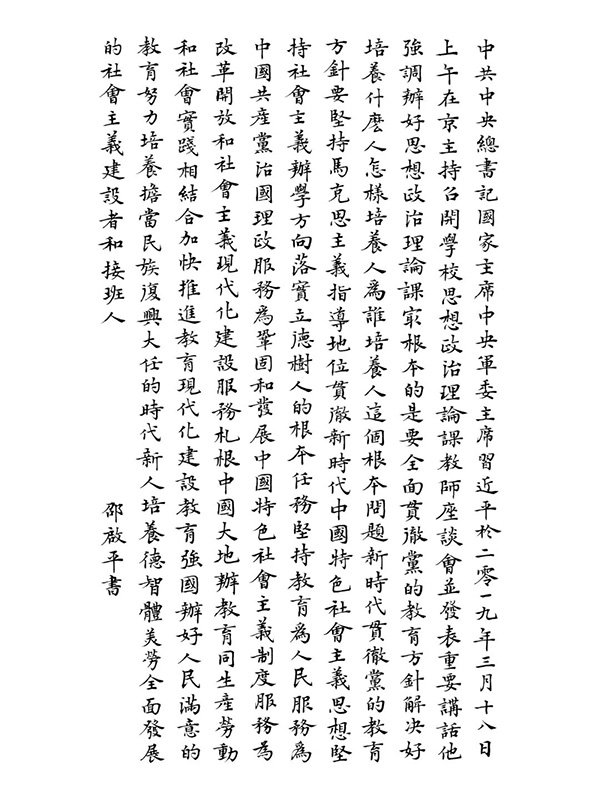 中共中央總書記國家主席中央軍委主席習近平於二零一九年三月十八日
上午在京主持召開學校思想政治理論課教師座談會並發表重要講話他
強調辦好思想政治理論課㝡根本的是要全面貫徹黨的教育方針解决好
培養什麽人怎樣培養人爲誰培養人這個根本問題新時代貫徹黨的教育
方針要堅持馬克思主義指導地位貫徹新時代中國特色社會主義思想堅
持社會主義辦學方向落實立德樹人的根本任務堅持教育爲人民服務爲
中國共産黨治國理政服務爲鞏固和發展中國特色社會主義制度服務为
改革開放和社會主義現代化建設服務札根中國大地辦教育同生産勞動
和社會實踐相結合加快推進教育現代化建設教育強國辦好人民滿意的
教育努力培養擔當民族復興大任的時代新人培養德智體美勞全面發展
的社會主義建設者和接班人
邵啟平書